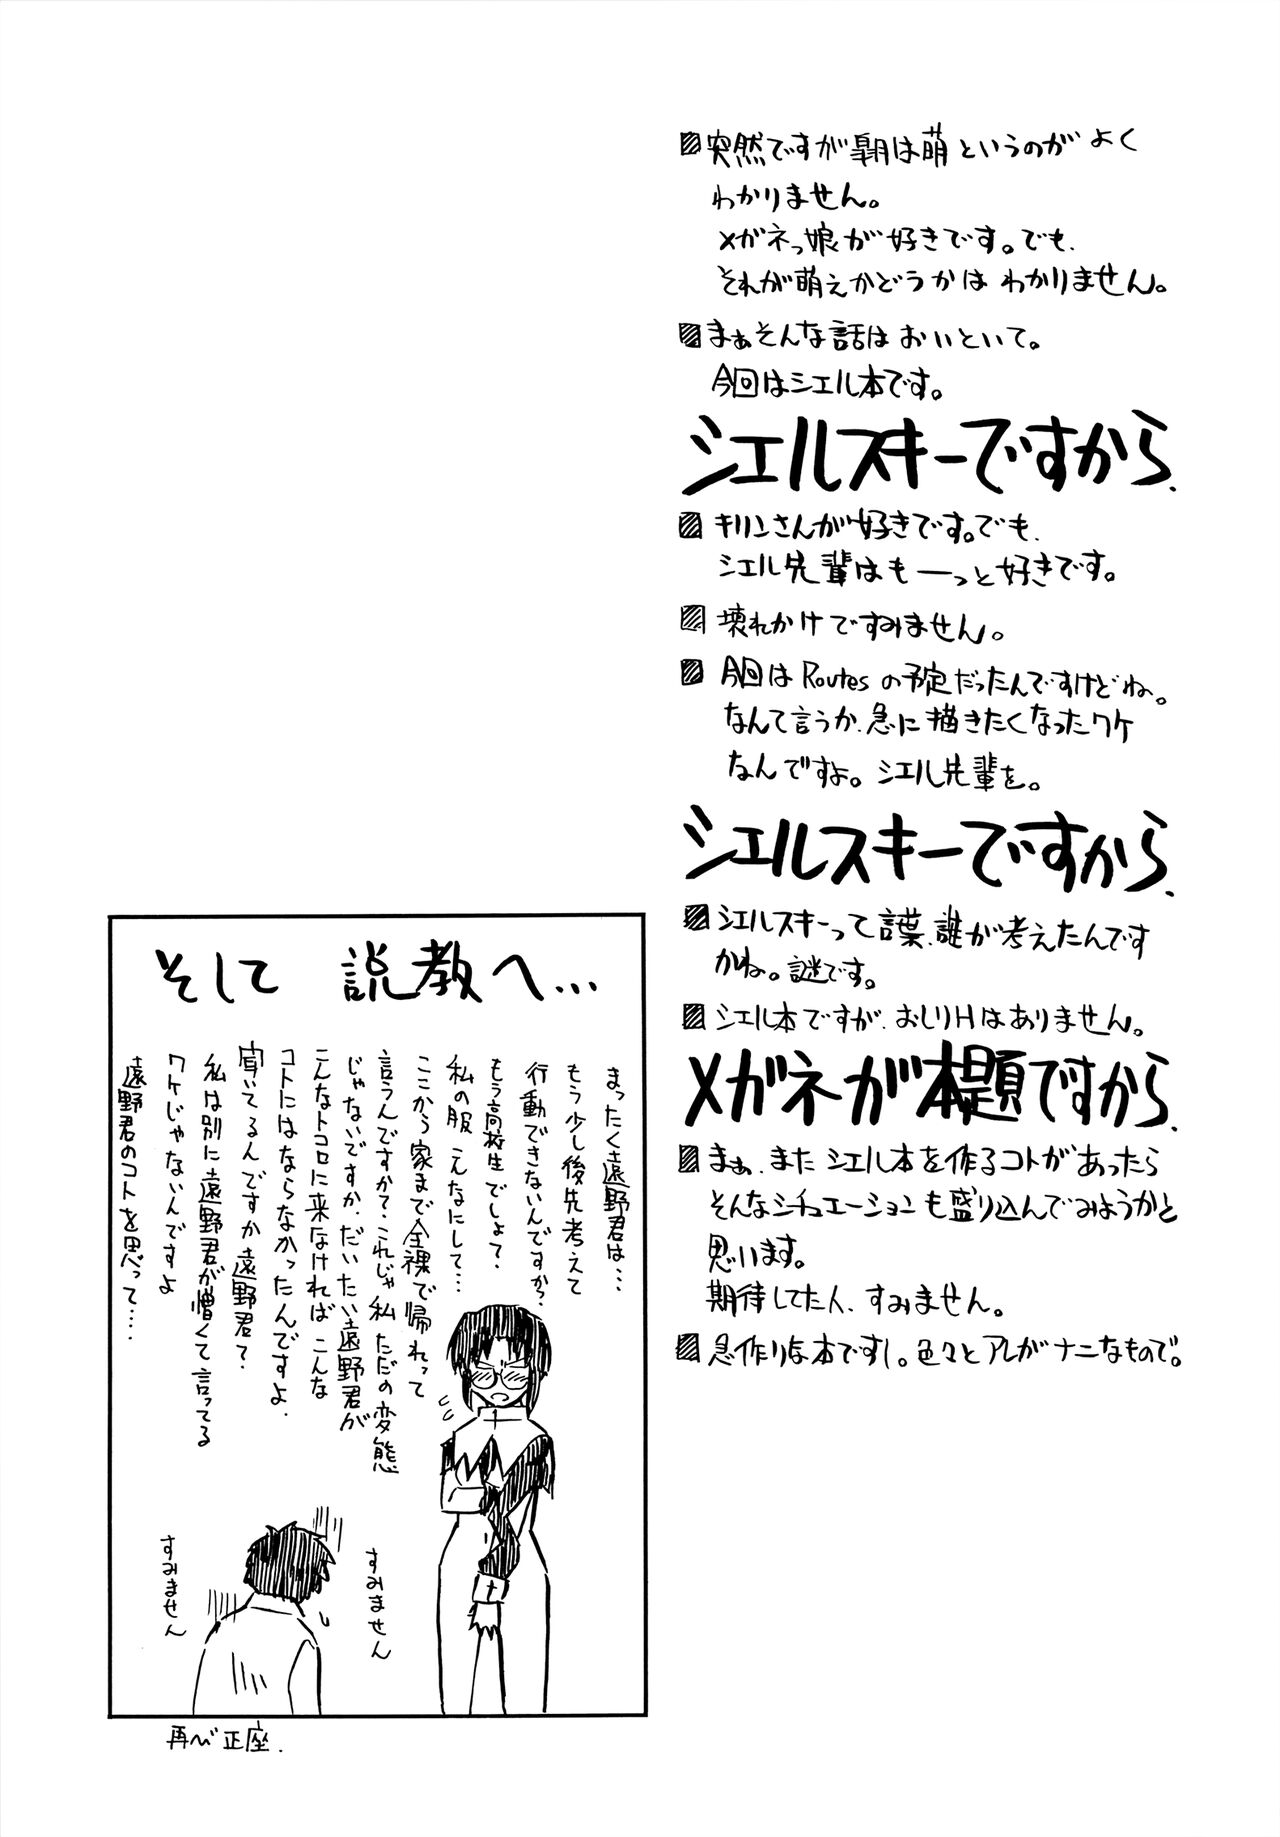 突然ですが皐月は萌というのがよく
わかりません。
メガネっ娘が好きです。でも、
それが萌えかどうかはわかりません。
まぁそんな話はおいといて。
今回はシエル本です。
シエルスキーですから.
キリンさんが好きです。でも、
シエル先輩はもーっと好きです。
壊れかけですみません。
今回はRoutesの予定だったんですけどね。
なんて言うか、急に描きたくなったワケ
なんですよ。シエル先輩を。
シエルスキーですから.
シエルスキーって言葉、誰が考えたんです
かね。謎です。
シエル本ですが、おしりHはありません。
メガネが本題ですから.
まぁ、またシエル本を作るコトがあったら
そんなシチュエーションも盛り込んでみようかと
思います。
期待してた人、すみません。
急作りな本ですし。色々とアレがナニなもので。
そして 説教へ…
まったく遠野君は…
もう少し後先考えて
行動できないんですか?
もう高校生でしょ?
私の服こんなにして…
ここから家まで全裸で帰れって
言うんですか?これじゃ私ただの変態
じゃないですか、だいたい遠野君が
こんなトコロに来なければこんな
コトにはならなかったんですよ.
聞いてるんですか遠野君?
私は別に遠野君が憎くて言ってる
ワケじゃないんですよ
遠野君のコトを思って….
すみません
すみません
再び正座.